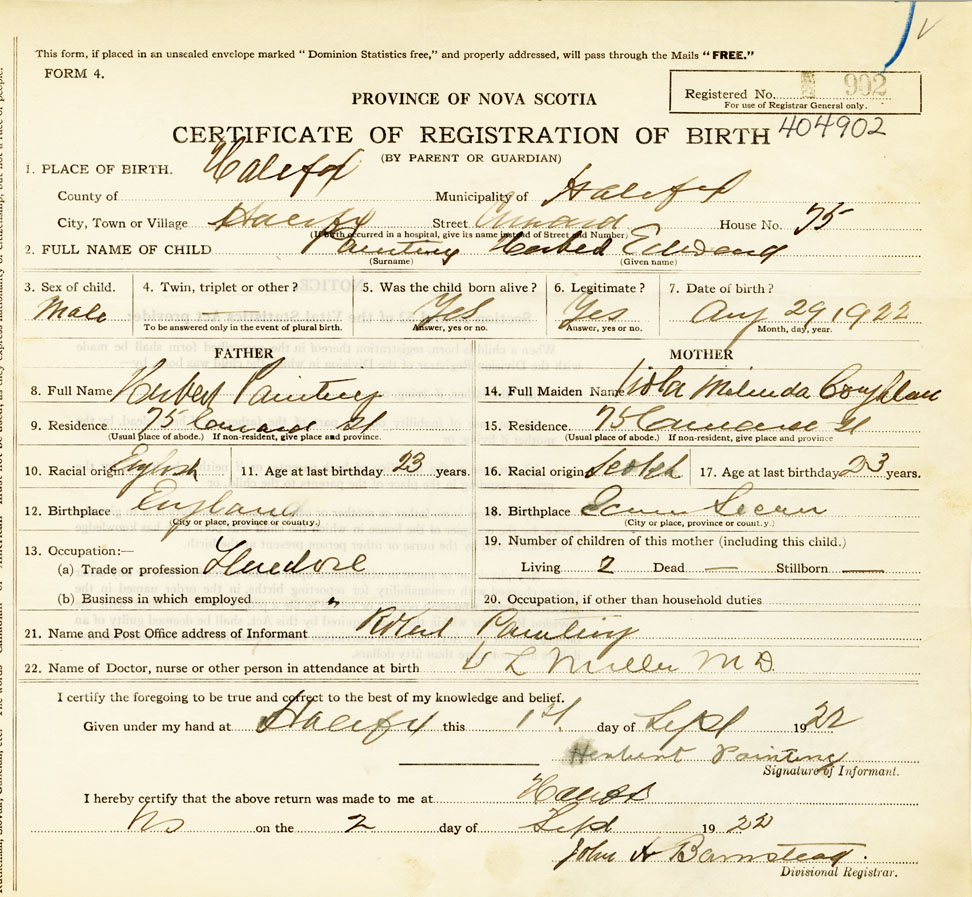 This form, if placed in an unsealed envelope marked "Dominion Statistics free," and properly addressed, will pass through the Mails "FREE."
FORM 4.
Registered No. 902
For use of Registrar General only.
PROVINCE OF NOVA SCOTIA
CERTIFICATE OF REGISTRATION OF BIRTH 404902
(BY PARENT OR GUARDIAN)
1. PLACE OF BIRTH. Halifax
County of Municipality of Halifax
City, Town or Village Halifax Street Cunard House No. 75
(If birth occurred in a hospital, give its name instead of Street and Number)
2. FULL NAME OF CHILD Painting Herbert Edward
(Surname) (Given name)
3. Sex of child. 4. Twin, triplet or other? 5. Was the child born alive? 6. Legitimate? 7. Date of birth?
Male Yes Yes Aug 29 1922
To be answered only in the event of plural birth. Answer, yes or no. Answer, yes or no. Month, day, year.
FATHER MOTHER
8. Full Name Herbert Painting 14. Full Maiden Name Viola Melinda Coughlan
9. Residence 75 Cunard St 15. Residence 75 Cunard St
(Usual place of abode.) If non-resident, give place and province. (Usual place of abode.) If non-resident, give place and province
10. Racial origin English 11. Age at last birthday 23 years. 16. Racial origin Scotch 17. Age at last birthday 23 years.
12. Birthplace England 18. Birthplace Secum
(City or place, province or country.) (City or place, province or country.)
13. Occupation:— 19. Number of children of this mother (including this child.)
(a) Trade or profession Living 2 Dead — Stillborn —
(b) Business in which employed " 20. Occupation, if other than household duties
21. Name and Post Office address of Informant Painting
22. Name of Doctor, nurse or other person in attendance at birth L Miller M D.
I certify the foregoing to be true and correct to the best of my knowledge and belief.
Given under my hand at Halifax this 1st day of Sept 1922
Herbert Painting
Signature of Informant.
I hereby certify that the above return was made to me at Halifax
NS on the 2 day of Sept 1922
John A Barnstead.
Divisional Registrar.